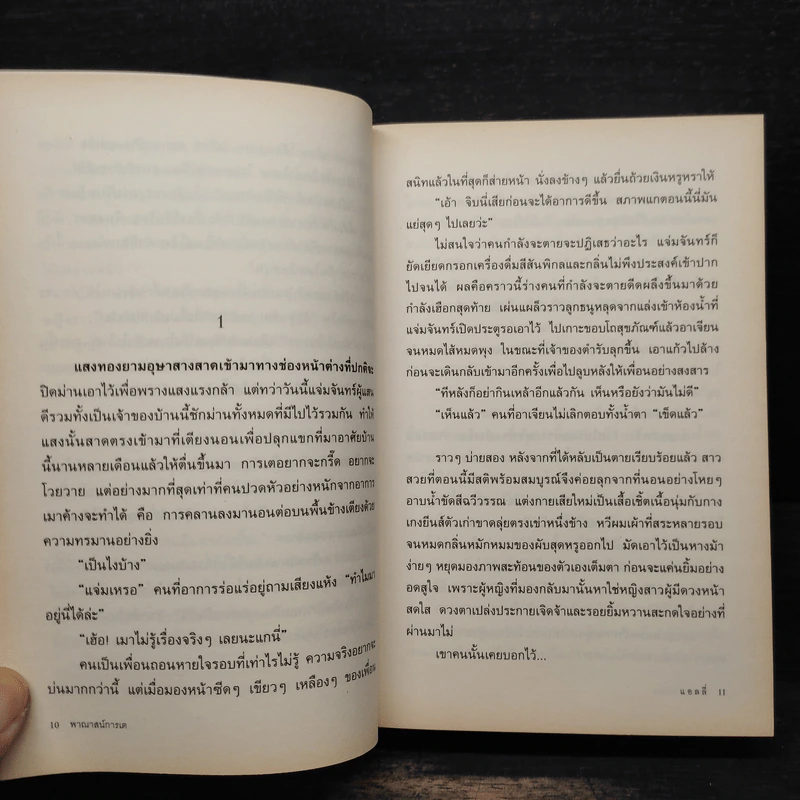 1
แสงทองยามอุษาสางสาดเข้ามาทางช่องหน้าต่างที่ปกติจะ
ปิดม่านเอาไว้เพื่อพรางแสงแรงกล้า แต่ทว่าวันนี้แจ่มจันทร์ผู้แสน
ดีรวมทั้งเป็นเจ้าของบ้านนี้ชักม่านทั้งหมดที่มีไปไว้รวมกัน ทำให้
แสงนั้นสาดตรงเข้ามาที่เตียงนอนเพื่อปลุกแขกที่มาอาศัยบ้าน
นี้นานหลายเดือนแล้วให้ตื่นขึ้นมา การเตอยากจะกรี๊ด อยากจะ
โวยวาย แต่อย่างมากที่สุดเท่าที่คนปวดหัวอย่างหนักจากอาการ
เมาค้างจะทำได้ คือ การคลานลงมานอนต่อบนพื้นข้างเตียงด้วย
ความทรมานอย่างยิ่ง
“เป็นไงบ้าง”
“แจ่มเหรอ” คนที่อาการร่อแร่อยู่ถามเสียงแห้ง “ทำไมมา
อยู่นี่ได้ล่ะ”
“เฮ้อ! เมาไม่รู้เรื่องจริงๆ เลยนะแกนี่”
คนเป็นเพื่อนถอนหายใจรอบที่เท่าไรไม่รู้ ความจริงอยากจะ
บ่นมากกว่านี้ แต่เมื่อมองหน้าซีดๆ เขียวๆ เหลืองๆ ของเพื่อน
10 พาณาสน์การเต
สนิทแล้วในที่สุดก็ส่ายหน้า นั่งลงข้างๆ แล้วยื่นถ้วยเงินหรูหราให้
“เอ้า จิบนี่เสียก่อนจะได้อาการดีขึ้น สภาพแกตอนนี้นี่มัน
แย่สุดๆ ไปเลยว่ะ”
ไม่สนใจว่าคนกำลังจะตายจะปฏิเสธว่าอะไร แจ่มจันทร์ก็
ยัดเยียดกรอกเครื่องดื่มสีสันพิกลและกลิ่นไม่พึงประสงค์เข้าปาก
ไปจนได้ ผลคือคราวนี้ร่างคนที่กำลังจะตายดีดผลึงขึ้นมาด้วย
กำลังเฮือกสุดท้าย เผ่นแผล็วราวลูกธนูหลุดจากแล่งเข้าห้องน้ำที่
แจ่มจันทร์เปิดประตูรอเอาไว้ ไปเกาะขอบโถสุขภัณฑ์แล้วอาเจียน
จนหมดไส้หมดพุง ในขณะที่เจ้าของตำรับลุกขึ้น เอาแก้วไปล้าง
ก่อนจะเดินกลับเข้ามาอีกครั้งเพื่อไปลูบหลังให้เพื่อนอย่างสงสาร
“ทีหลังก็อย่ากินเหล้าอีกแล้วกัน เห็นหรือยังว่ามันไม่ดี”
“เห็นแล้ว” คนที่อาเจียนไม่เลิกตอบทั้งน้ำตา “เข็ดแล้ว”
ราวๆ บ่ายสอง หลังจากที่ได้หลับเป็นตายเรียบร้อยแล้ว สาว
สวยที่ตอนนี้มีสติพร้อมสมบูรณ์จึงค่อยลุกจากที่นอนอย่างโหยๆ
อาบน้ำขัดสีฉวีวรรณ แต่งกายเสียใหม่เป็นเสื้อเชิ้ตเนื้อนุ่มกับกาง
เกงยีนส์ตัวเก่าขาดลุ่ยตรงเข่าหนึ่งข้าง หวีผมเผ้าที่สระหลายรอบ
จนหมดกลิ่นหมักหมมของผับสุดหรูออกไป มัดเอาไว้เป็นหางม้า
ง่ายๆ หยุดมองภาพสะท้อนของตัวเองเต็มตา ก่อนจะแค่นยิ้มอย่าง
อดสูใจ เพราะผู้หญิงที่มองกลับมานั้นหาใช่หญิงสาวผู้มีดวงหน้า
สดใส ดวงตาเปล่งประกายเจิดจ้าและรอยยิ้มหวานสะกดใจอย่างที่
ผ่านมาไม่
เขาคนนั้นเคยบอกไว้...
แอลลี่ 11